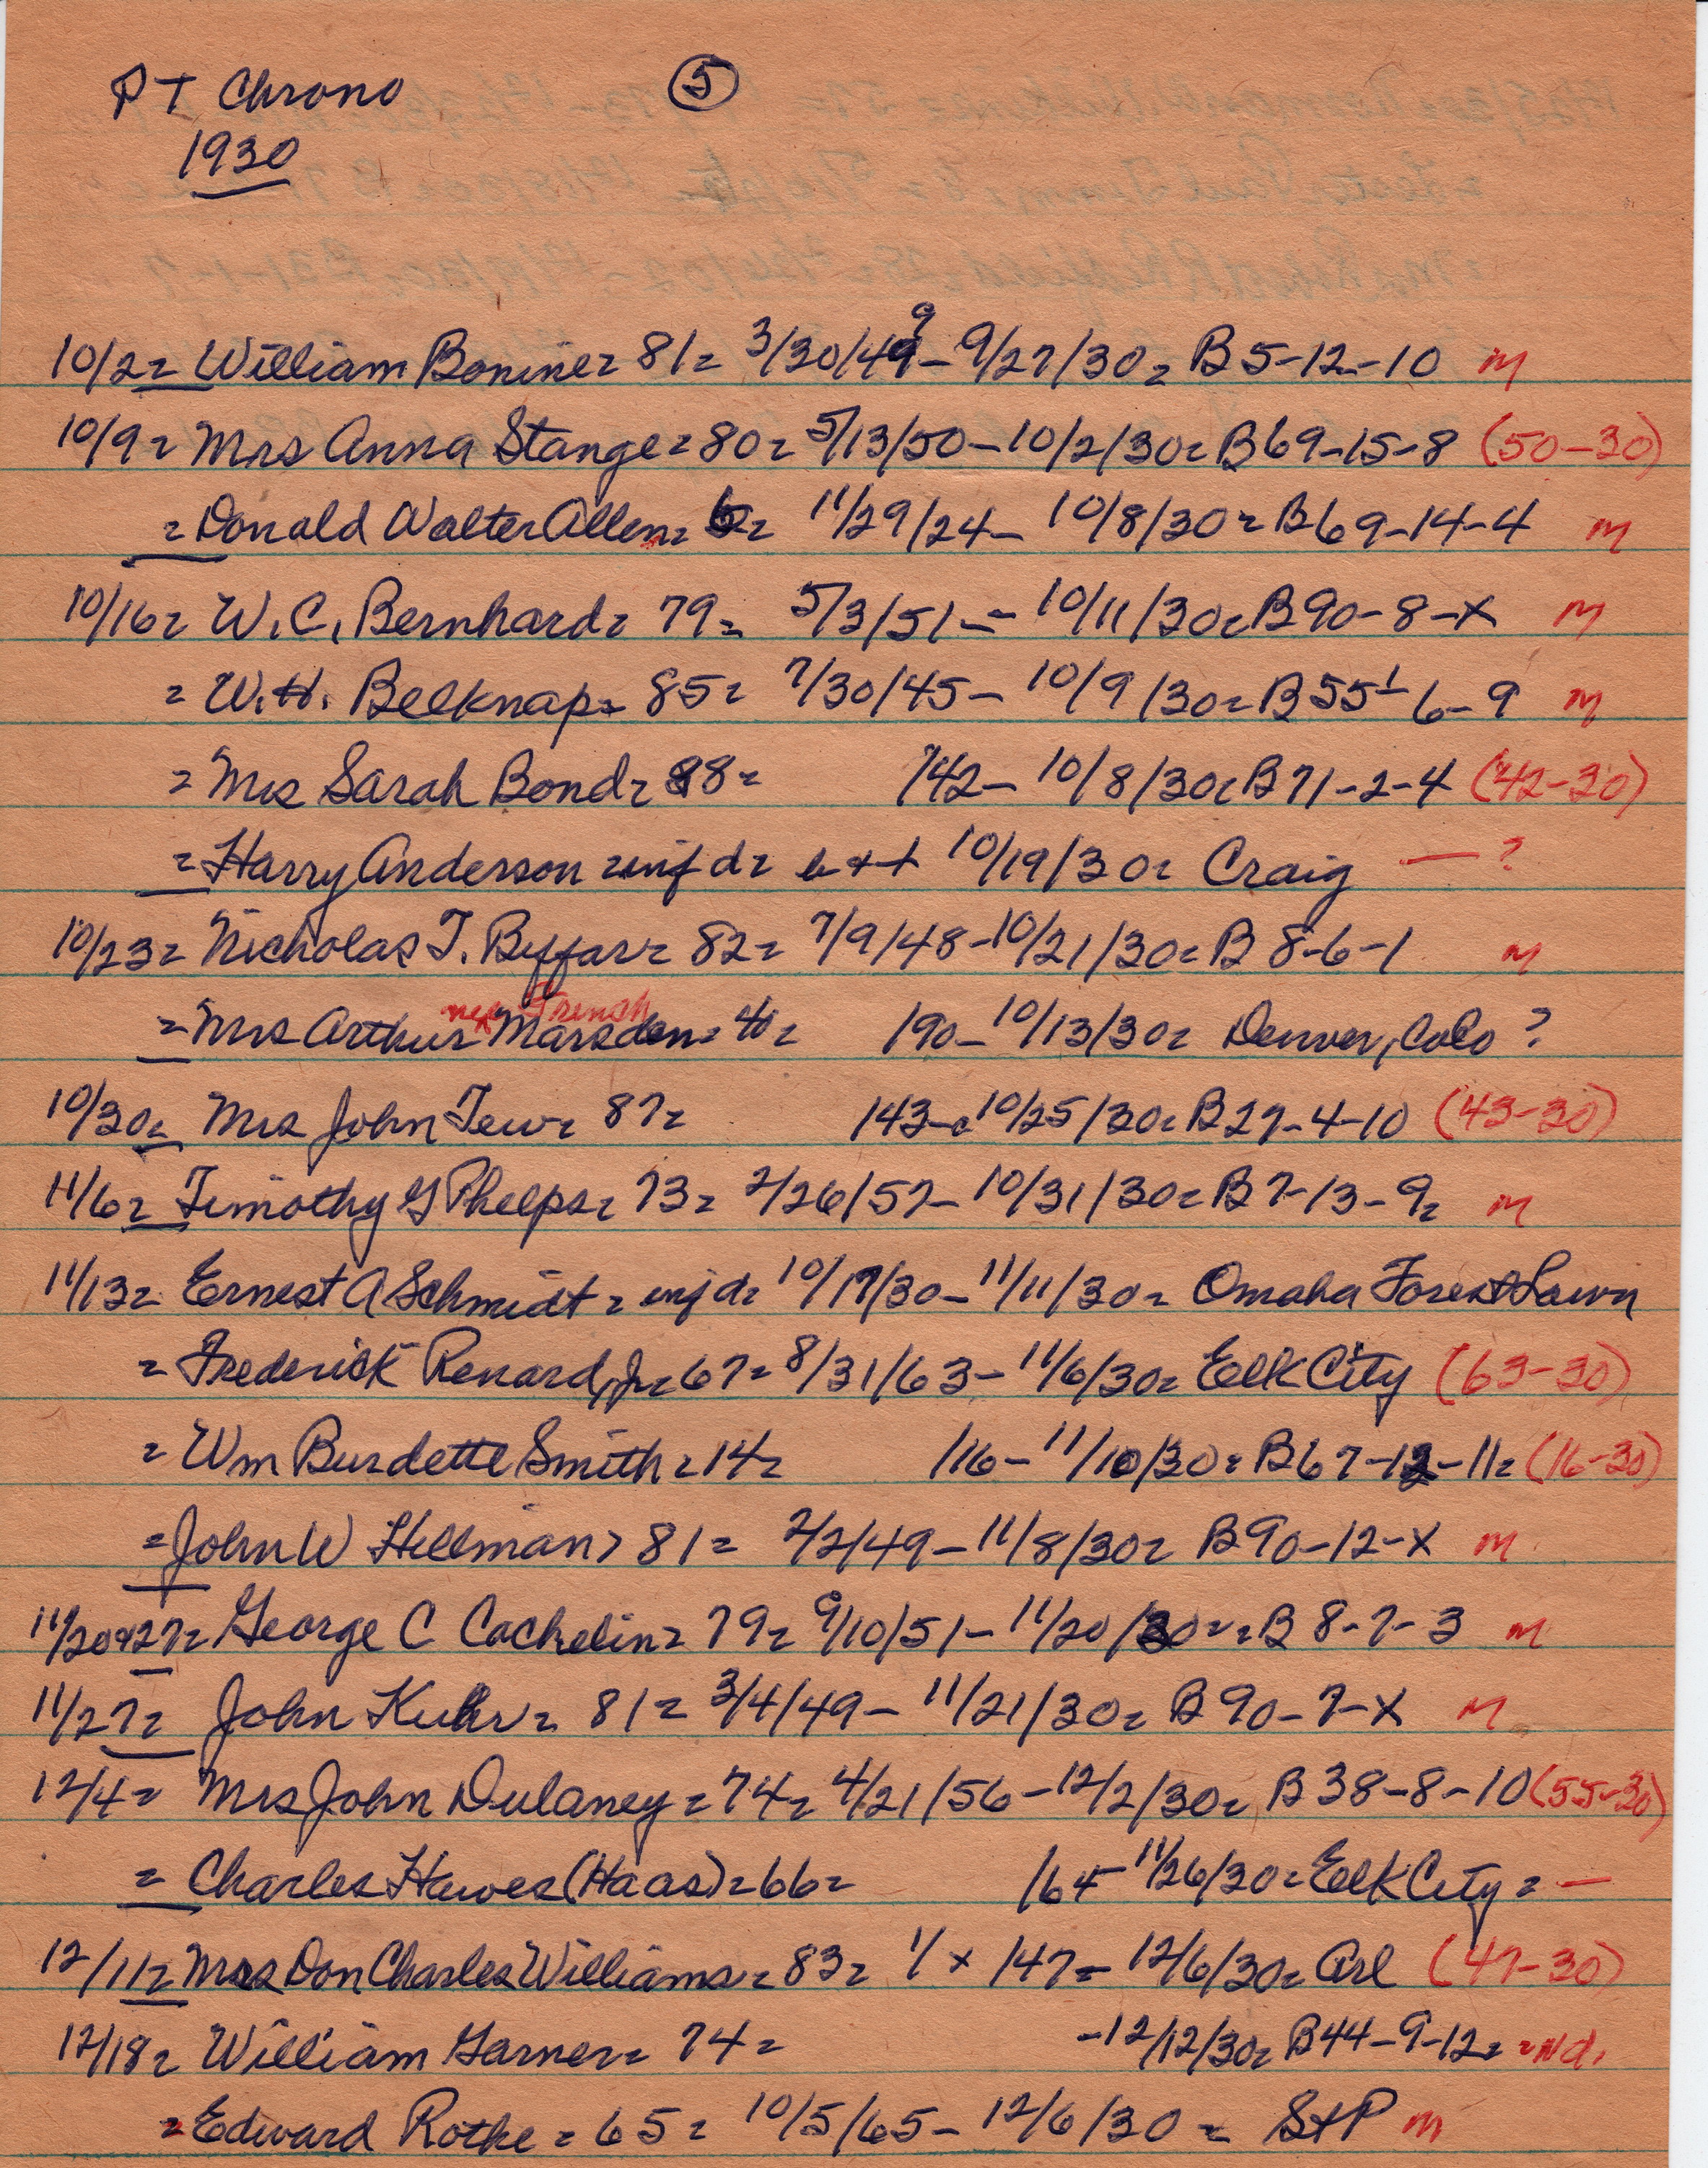 PT Chrono ⑤
1930
10/2= William Bonine= 81= 3/30/49 9 - 9/27/30= B 5-12-10 m
10/9= Mrs Anna Stange= 80= 5/13/50-10/2/30= B69-15-8 (50-30)
= Donald Walter Allen= 5= 11/29/24- 10/8/30= B69-14-4 m
10/16= W.C. Bernhard= 79= 5/3/51- 10/11/30= B90-8-X m
= W.H. Belknap= 85= 7/30/45- 10/9/30= B 55 1-6-9 m
= Mrs Sarah Bond= 88= /42- 10/8/30= B71-2-4 (42-30)
= Harry Anderson = inf d= b+d 10/19/30= Craig — ?
10/23= Nicholas T. Byffar= 82= 7/9/48-10/21/30= B 8-6-1 m
nee French
= Mrs Arthur Marsden= 40= /90- 10/13/30= Denver, Colo ?
10/30= Mrs John Tew= 87= /43- 10/25/30= B27-4-10 (43-30)
11/6= Timothy G Phelps= 73= 2/26/57- 10/31/30= B7-13-9= m
11/13= Ernest A Schmidt= inf d= 10/17/30-11/11/30= Omaha Forest Lawn
= Frederick Renard, Jr= 67= 8/31/63- 11/6/30= Elk City (63-30)
= Wm Burdette Smith= 14= /16- 11/10/30= B67-12-11= (16-30)
= John W Hillman> 81= 2/2/49- 11/8/30= B90-12-X m
11/20&27= George C Cachelin= 79= 9/10/51- 11/20/30== B 8-7-3 m
11/27= John Kuhr= 81= 3/4/49- 11/21/30= B90-7-X m
12/4= Mrs John Dulaney= 74= 4/21/56-12/2/30= B38-8-10 (55-30)
= Charles Hawes (Haas)= 66= /64- 11/26/30= Elk City= —
12/11= Mrs Don Charles Williams= 83= 1/x /47- 12/6/30= Arl (47-30)
12/18= William Garner= 74= -12/12/30= B44-9-12= =Nd.
= Edward Rothe= 65= 10/5/65- 12/6/30= StP m